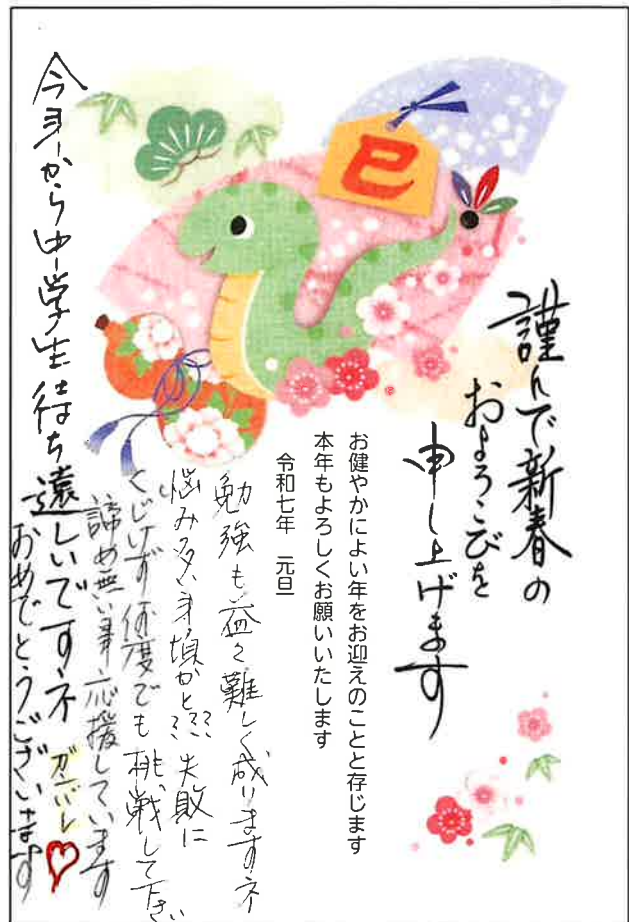 謹んで新春の
およろこびを
申し上げます
巳
お健やかによい年をお迎えのことと存じます
本年もよろしくお願いいたします
令和七年 元旦
勉強も益々難しく成りますネ
悩み多い年頃かと??? 失敗に
くじけず何度でも挑戦して下さい
諦め無い事応援しています
今年から中学生待ち遠しいですネ ガンバレ
おめでとうございます